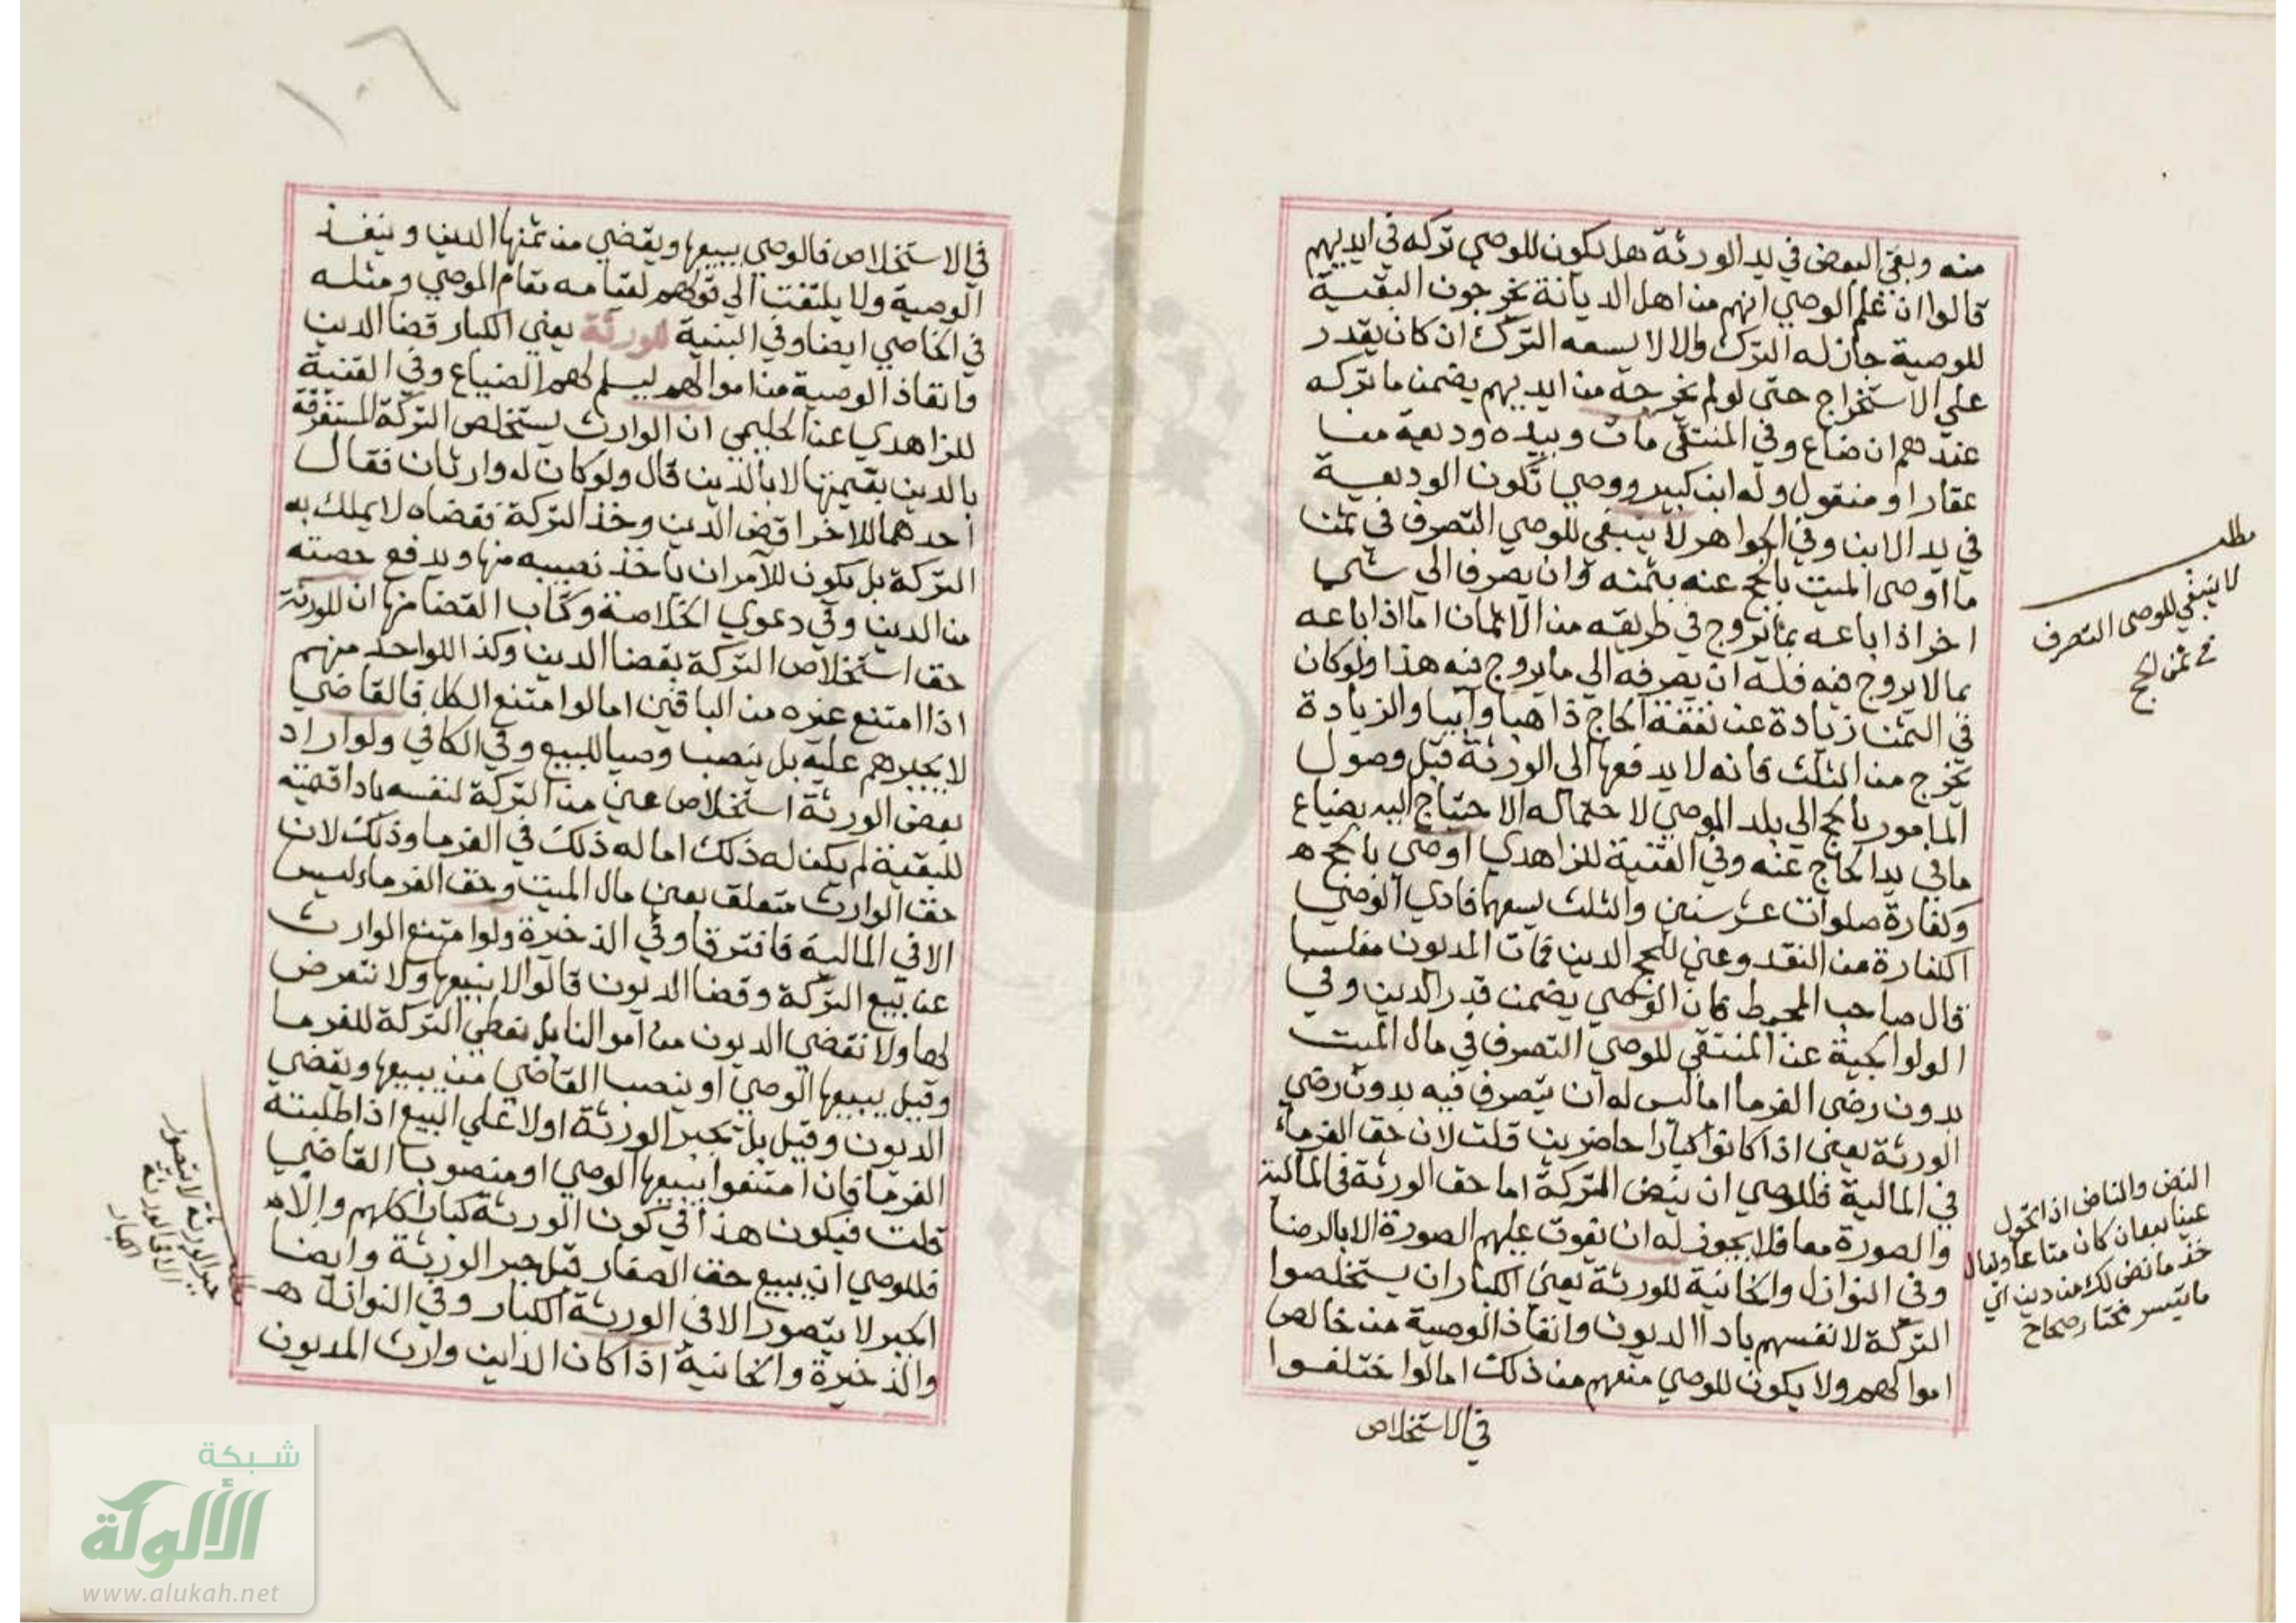 منه وبقي البعض في يد الورثة هل يكون للوصي تركه في ايديهم
قالوا ان علم الوصي انهم من اهل الديانة يخرجون البقية
للوصية جاز له الترك والا لا يسعه الترك ان كان يقدر
علي الاستخراج حتى لو لم يخرجه من ايديهم يضمن ما تركه
عندهم ان ضاع وفي المنتقى مات وبيده وديعة من
عقار او منقول وله ابن كبير ووصي تكون الوديعة
في يد الابن وفي الجواهر لا ينبغي للوصي التصرف في ثمن
ما اوصى الميت بالحج عنه بثمنه وان يصرف الي شي
اخر اذا باعه بما يروج في طريقه من الاثمان اما اذا باعه
بما لا يروج فيه فله ان يصرفه الي ما يروج فيه هذا ولو كان
في الثمن زيادة عن نفقة الحاج ذاهبا وآيبا والزيادة
تخرج من الثلث فانه لا يدفعها الى الورثة قبل وصول
المامور بالحج الي بلد الموصي لاحتمال الاحتياج اليه بضياع
ما في يد الحاج عنه وفي القنية للزاهدي اوصي بالحج ه
وكفارة صلوات عشر سنين والثلث يسعهما فادي الوصي
الكفارة من النقد وعين للحج الدين فمات المديون مفلسا
قال صاحب المحيط كان الوصي يضمن قدر الدين وفي
الولوالجية عن المنتقى للوصي التصرف في مال الميت
بدون رضى الغرما اما ليس له ان يتصرف فيه بدون رضي
الورثة يعني اذا كانوا كبارا حاضرين قلت لان حق الغرماء
في المالية فللوصي ان ينض التركة اما حق الورثة في المالية
والصورة معا فلا يجوز له ان يفوت عليهم الصورة الا بالرضا
وفي النوازل والخانية للورثة يعني الكبار ان يستخلصوا
التركة لانفسهم باداا الديون وانفاذ الوصية من خالص
اموالهم ولا يكون للوصي منعهم من ذلك اما لو اختلفوا
في الاستخلاص
مطلب
لا ينبغي للوصى التصرف
في ثمن الحج
النض والناض اذا تحول
عينا بعد ان كان متاعا ويقال
خذ ما نض لك من دين اي
ما تيسر مختار صحاح
١٠٦
في الاستخلاص فالوصي يبيعها ويقضي من ثمنها الدين وينفذ
الوصية ولا يلتفت الي قولهم لقيامه مقام الموصي ومثله
في الخاصي ايضا وفي البنية للورثة يعني الكبار قضا الدين
وانفاذ الوصية من اموالهم ليسلم لهم الضياع وفي القنية
للزاهدي عن الحليمي ان الوارث يستخلص التركة المستغرقة
بالدين بقيمتها لا بالدين قال ولو كان له وارثان فقال
احدهما للاخر اقض الدين وخذ التركة فقضاه لا يملك به
التركة بل يكون للآمر ان ياخذ نصيبه منها ويدفع حصته
من الدين وفي دعوي الخلاصة وكتاب القضا منها ان للورثة
حق استخلاص التركة بقضا الدين وكذا للواحد منهم
اذا امتنع غيره من الباقين اما لو امتنع الكل فالقاضي
لا يجبرهم عليه بل ينصب وصيا للبيع وفي الكافي ولو اراد
بعض الورثة استخلاص عين من التركة لنفسه باداا قيمته
للبقية لم يكن له ذلك اما له ذلك في الغرما وذلك لان
حق الوارث متعلق بعين مال الميت وحق الغرماء ليس
الا في المالية فافترقا وفي الذخيرة ولو امتنع الوارث
عن بيع التركة وقضا الديون قالوا لا نبيعها ولا نتعرض
لها ولا نقضي الديون من اموالنا بل نعطي التركة للغرما
وقيل يبيعها الوصي او ينصب القاضي من يبيعها ويقضي
الديون وقيل بل تجبر الورثة اولا علي البيع اذا طلبته
الغرما فان امتنعوا يبيعها الوصي او منصوب القاضي
قلت فيكون هذا في كون الورثة كبارا كلهم والا ه
فللوصي ان يبيع حق الصغار قبل جبر الورثة وايضا
الجبر لا يتصور الا في الورثة الكبار وفي النوازل ه
والذخيرة والخانية اذا كان الداين وارث المديون
مطلب
جبر الورثة لا يتصور
الا في الورثة
الكبار
شبكة
الألوكة
www.alukah.net